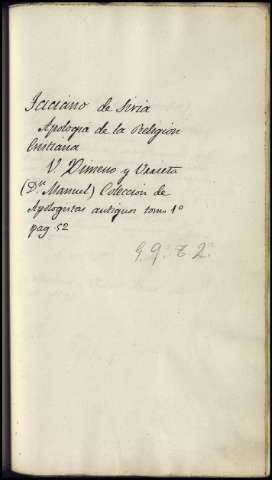 Taciano de Siria
Apologia de la Religion
Cristiana
V. Ximeno y Urieta
(Dn Manuel) Colección de
Apologistas antiguos tomo 1º
pag 52